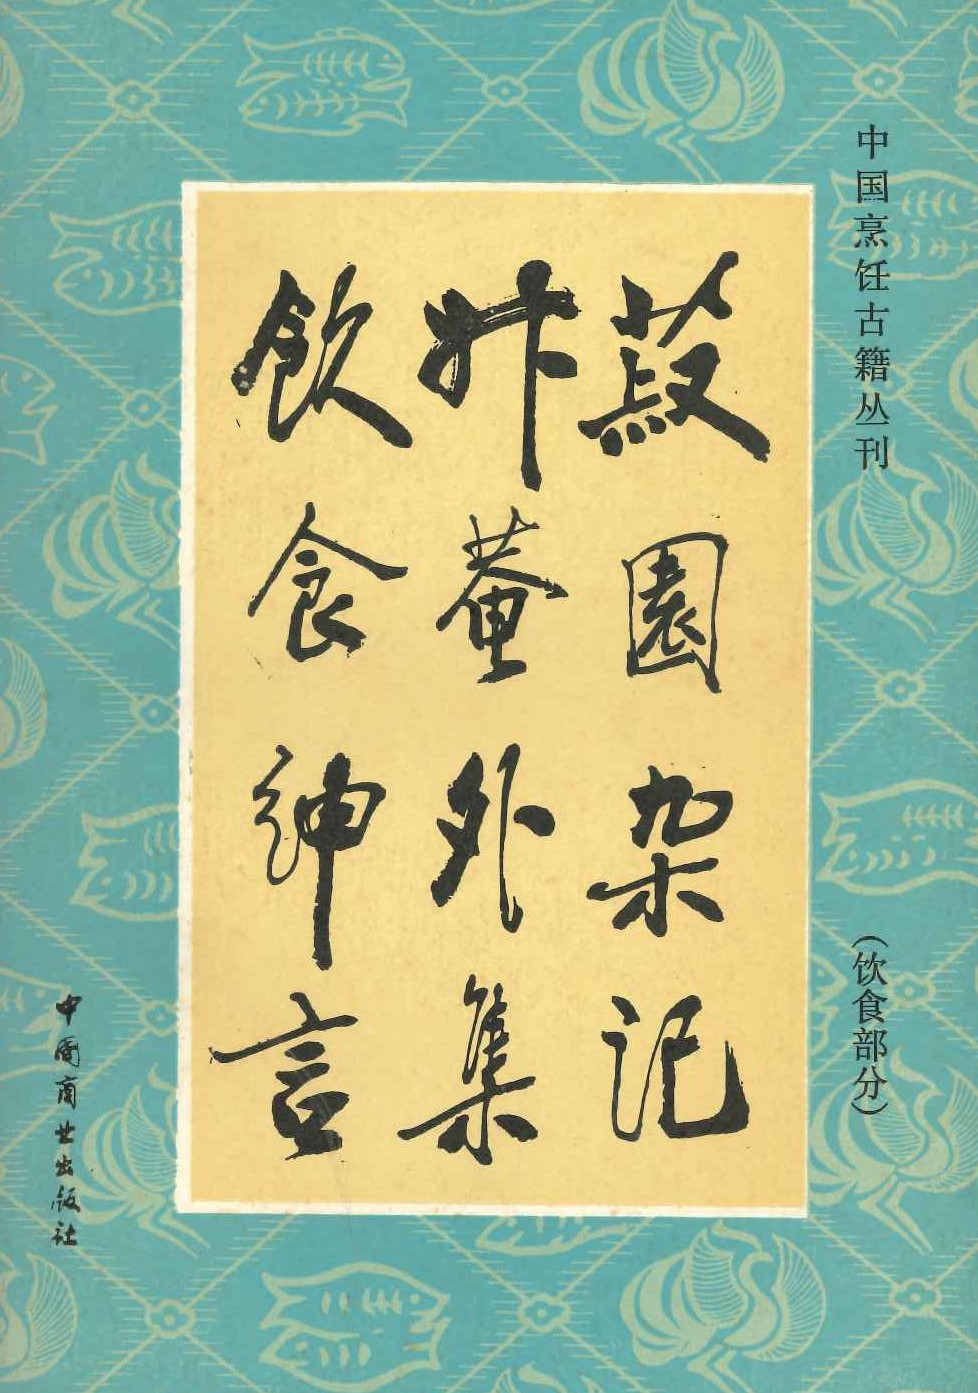 中国烹饪古籍丛刊
（饮食部分）
菽園杂记
升菴外集
飲食绅言
中國商业出版社